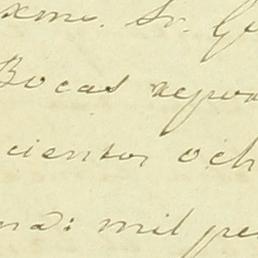 xmo. Sr. Ge
Bocas repor
cientos och
na: mil pe